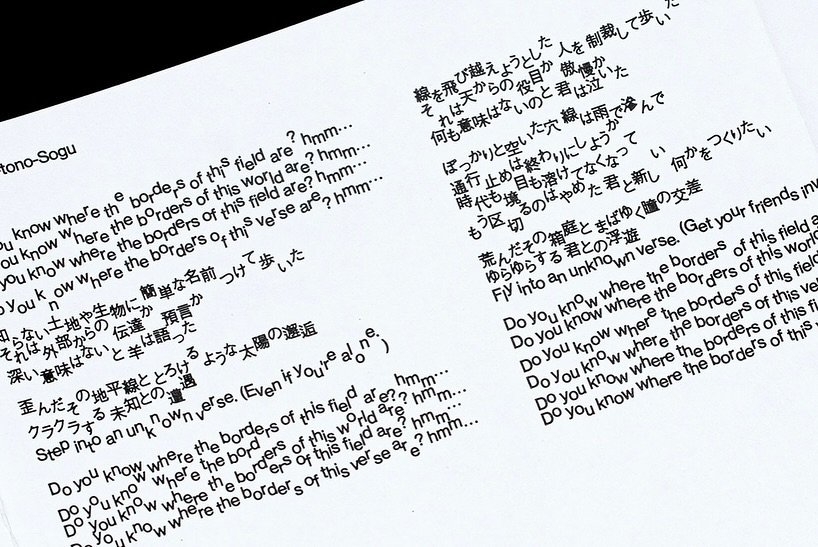 tono-Sogu
ou know where the borders of this field are? hmm…
you know where the borders of this world are? hmm…
you know where the borders of this field are? hmm…
o you know where the borders of this verse are? hmm…
知らない土地や生物に簡単な名前つけて歩いた
それは外部からの伝達か預言か
深い意味はないと羊は語った
歪んだその地平線ととろけるような太陽の邂逅
クラクラする未知との遭遇
Step into an unknown verse. (Even if you're alone.)
Do you know where the borders of this field are? hmm…
Do you know where the borders of this world are? hmm…
Do you know where the borders of this field are? hmm…
Do you know where the borders of this verse are? hmm…
線を飛び越えようとした人を制裁して歩いた
それは天からの役目か傲慢か
何も意味はないのと君は泣いた
ぽっかりと空いた穴 線は雨で滲んで
通行止めは終わりにしようか
時代も境目も溶けてなくなって
もう区切るのはやめた 君と新しい何かをつくりたい
荒んだその箱庭とまばゆく瞳の交差
ゆらゆらする君との浮遊
Fly into an unknown verse. (Get your friends inv
Do you know where the borders of this field a
Do you know where the borders of this world
Do you know where the borders of this field
Do you know where the borders of this ve
Do you know where the borders of this fi
Do you know where the borders of this